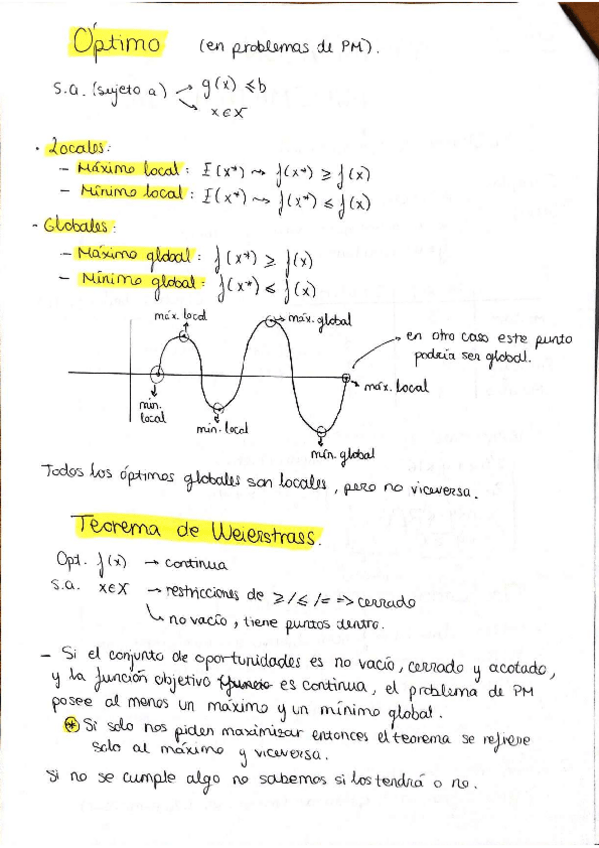 Óptimo (en problemas de PM).
s.a. (sujeto a) → g(x) ≤ b
↘ x ∈ X
· Locales:
– Máximo local: E(x*) ⇝ f(x*) ≥ f(x)
– Mínimo local: E(x*) ⇝ f(x*) ≤ f(x)
- Globales:
– Máximo global: f(x*) ≥ f(x)
– Mínimo global: f(x*) ≤ f(x)
máx. local
máx. global
en otro caso este punto
podría ser global.
máx. local
min.
local
min. local
mín. global
Todos los óptimos globales son locales, pero no viceversa.
Teorema de Weierstrass.
Opt. f(x) → continua
s.a. x∈X → restricciones de ≥/≤/= => cerrado
↳ no vacío, tiene puntos dentro.
– Si el conjunto de oportunidades es no vacío, cerrado y acotado,
y la función objetivo es continua, el problema de PM
posee al menos un máximo y un mínimo global.
* Si solo nos piden maximizar entonces el teorema se refiere
solo al máximo y viceversa.
Si no se cumple algo no sabemos si los tendrá o no.